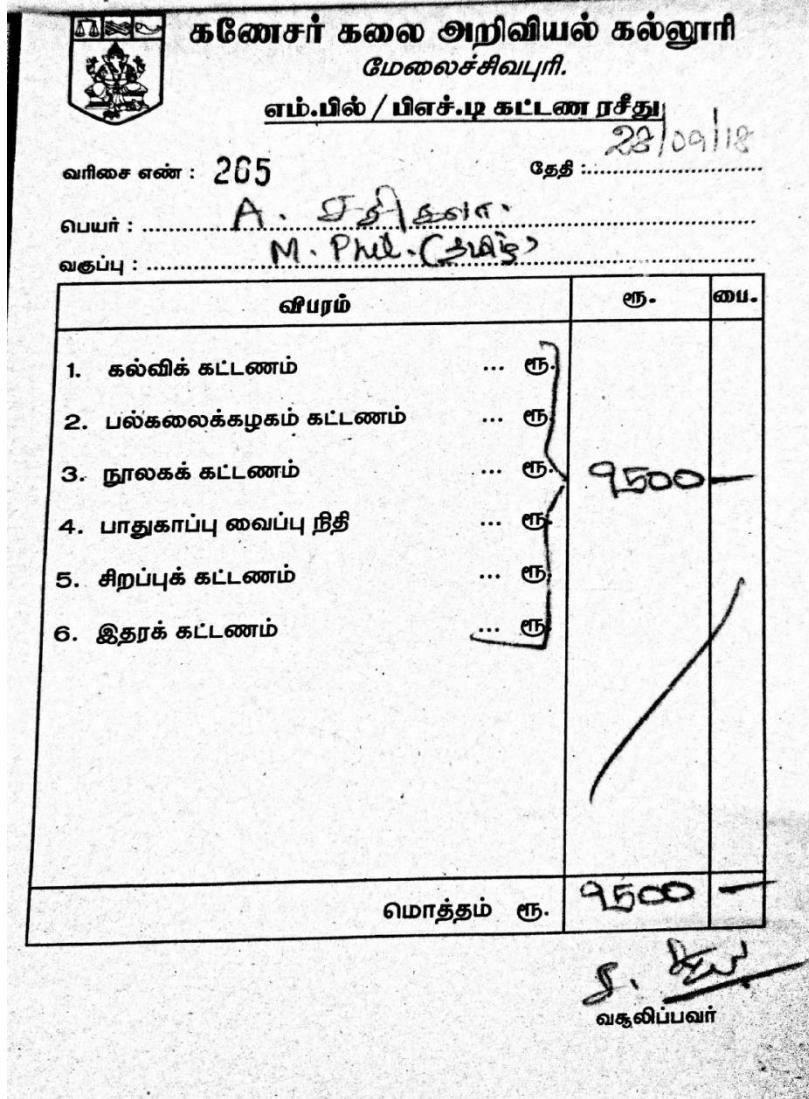 கணேசர் கலை அறிவியல் கல்லூரி
மேலைச்சிவபுரி.
எம்.பில் / பிஎச்.டி கட்டண ரசீது
வரிசை எண் : 265 தேதி : 28/09/18
பெயர் : A. சசிகலா.
வகுப்பு : M. Phil. (தமிழ்)
விபரம் ரூ. பை.
1. கல்விக் கட்டணம் ... ரூ.
2. பல்கலைக்கழகம் கட்டணம் ... ரூ.
3. நூலகக் கட்டணம் ... ரூ. 9500 —
4. பாதுகாப்பு வைப்பு நிதி ... ரூ.
5. சிறப்புக் கட்டணம் ... ரூ.
6. இதரக் கட்டணம் ... ரூ.
மொத்தம் ரூ. 9500 —
வசூலிப்பவர்